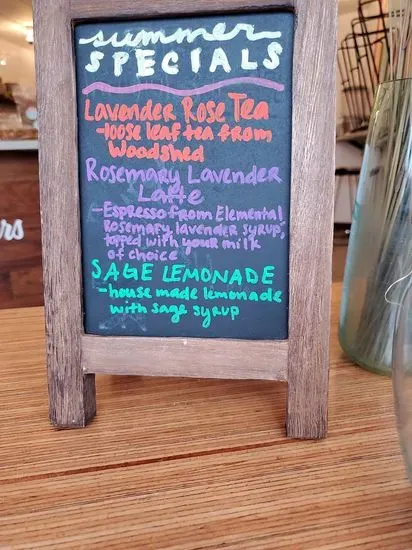 summer
SPECIALS
Lavender Rose Tea
-loose leaf tea from
Woodshed
Rosemary Lavender
Latte
-Espresso from Elemental
Rosemary, lavender syrup,
topped with your milk
of choice
SAGE LEMONADE
-house made lemonade
with sage syrup